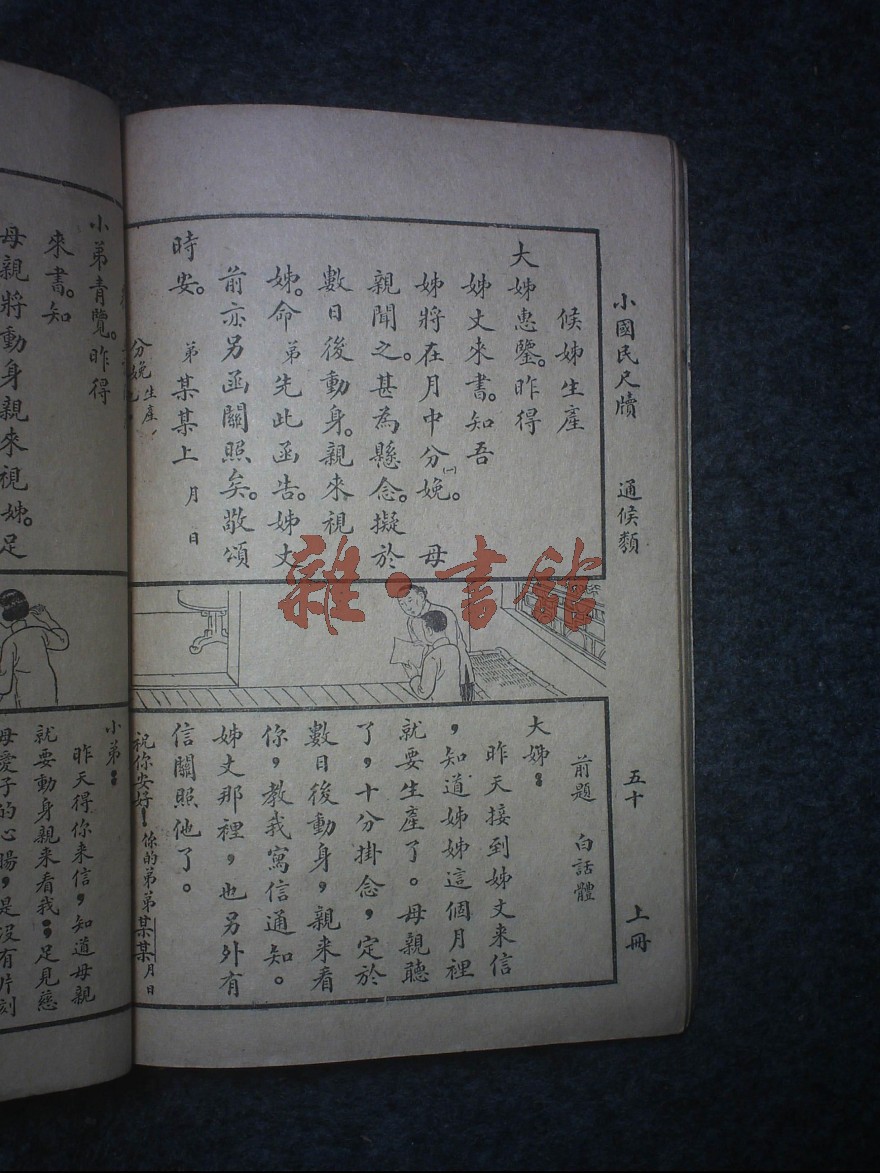 小國民尺牘 通候類 五十 上冊
候姊生產
大姊惠鑒。昨得
姊丈來書。知吾
姊將在月中分娩㈠。母
親聞之。甚為懸念。擬於
數日後動身。親來視
姊。命弟先此函告。姊丈
前亦另函關照矣。敬頌
時安。 弟某某上 月 日
分娩 生產
前題 白話體
大姊：
昨天接到姊丈来信
，知道姊姊這個月裡
就要生產了。母親聽
了，十分掛念，定於
數日後動身，親来看
你，教我寫信通知。
姊丈那裡，也另外有
信關照他了。
祝你安好！你的弟弟某某月日
小弟青覽。昨得
來書。知
母親將動身親來視姊。足
小弟：
昨天得你来信，知道母親
就要動身親来看我；足見慈
母愛子的心腸，是沒有片刻
雜·書館